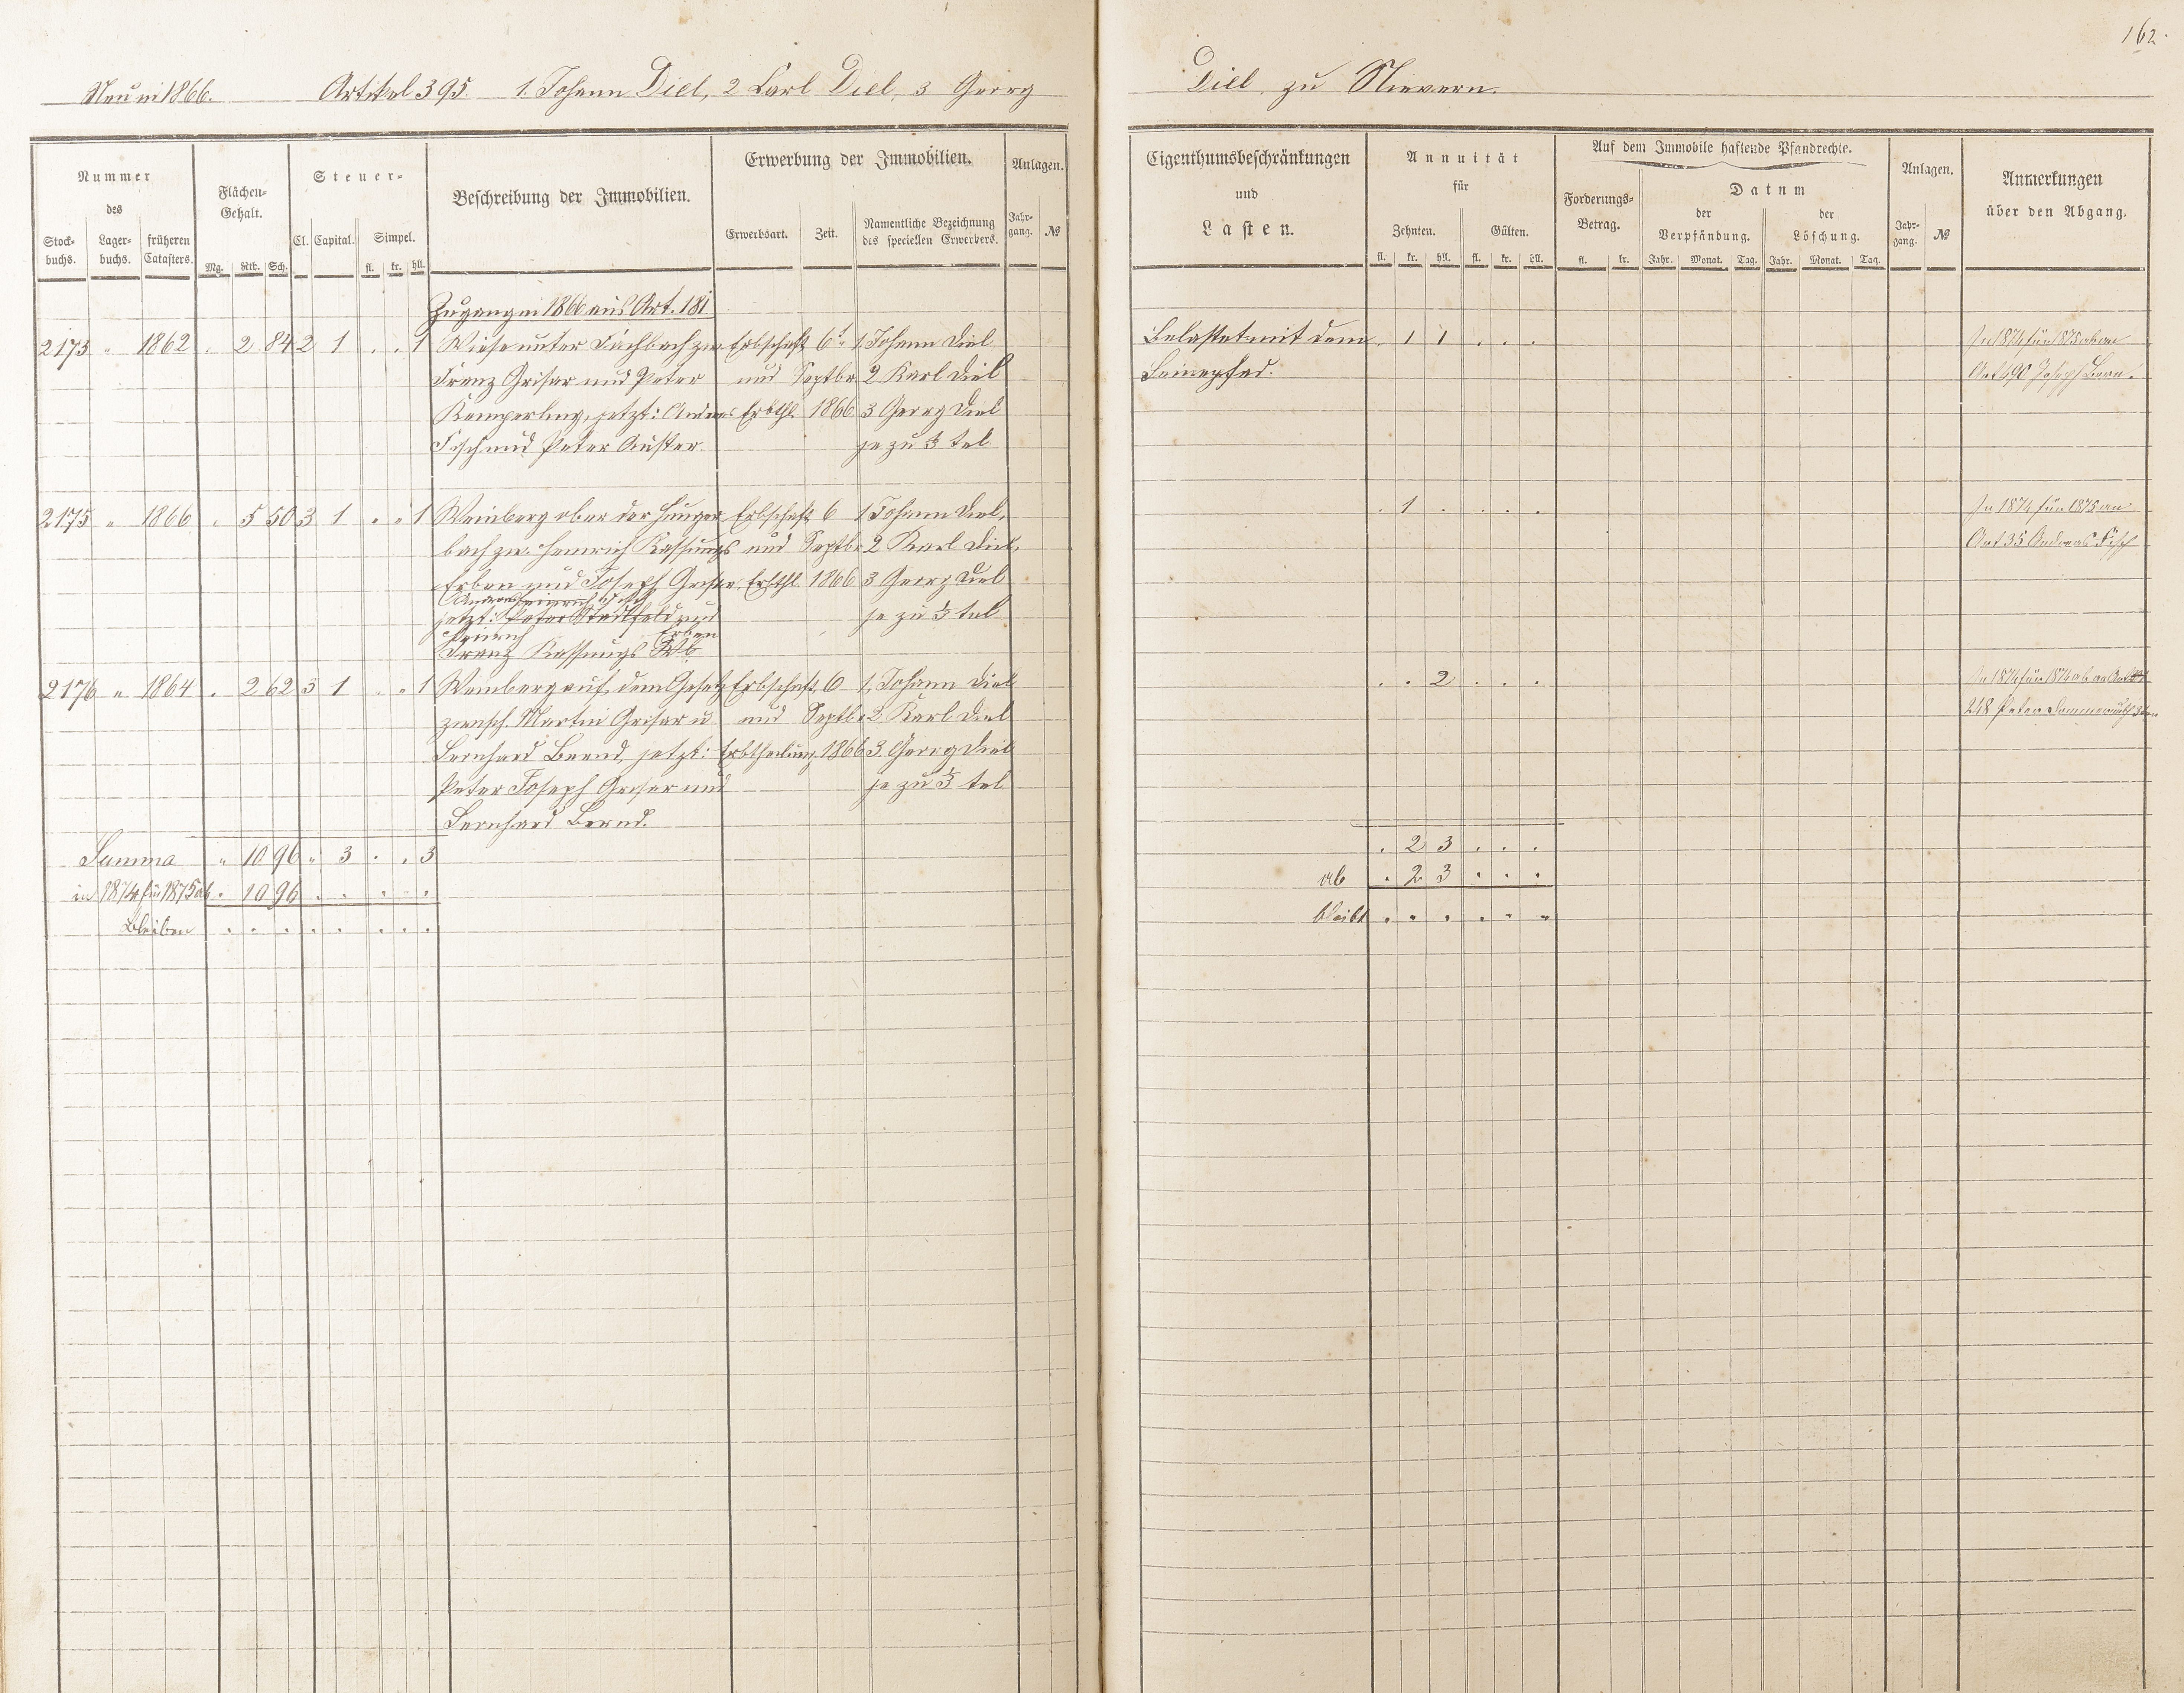 162.
Neu in 1866. Artikel 395. 1. Johann Diel, 2 Carl Diel, 3 Georg Diel, zu Nievern.
Nummer des
Stockbuchs. Lagerbuchs. früheren Catasters.
Flächen-Gehalt.
Mg. Rth. Sch.
Steuer-
Cl. Capital. Simpel.
fl. kr. hll.
Beschreibung der Immobilien.
Erwerbung der Immobilien.
Erwerbsart. Zeit. Namentliche Bezeichnung des speciellen Erwerbers.
Anlagen.
Jahrgang. №
Eigenthumsbeschränkungen
und
Lasten.
Annuität
für
Zehnten. Gülten.
fl. kr. hll. fl. kr. hll.
Auf dem Immobile haftende Pfandrechte.
Forderungs-Betrag.
fl. kr.
Datum
der Verpfändung. der Löschung.
Jahr. Monat. Tag. Jahr. Monat. Tag.
Anlagen.
Jahrgang. №
Anmerkungen
über den Abgang.
Zugang in 1866 aus Art. 181
2173 " 1862 . 2 84 2 1 . . 1 Wiese unter Fachbach zw. Erbschaft 6t. 1. Johann Diel Belastet mit dem . 1 1 . . . In 1874 für 1875 ab an
Franz Grisar und Peter und Septbr 2 Karl Diel Leinepfad. Art 490 Joseph
Kemperling, jetzt: Andreas Erbthl. 1866 3 Georg Diel
Fisch und Peter Auster je zu 1/3 tel
2175 " 1866 . 5 50 3 1 . " 1 Weinberg ober der Hunger Erbschaft 6 1 Johann Diel, . 1 . . . . In 1874 für 1875 an
bach zw. Heinrich Kassungs und Septbr 2 Karl Diel, Art 35 Andreas Fisch
Erben und Joseph Grisar Erbthl. 1866 3 Georg Diel
Andreas Fisch
jetzt: Peter Stadtfeld und je zu 1/3 tel
Heinrich Erben
Franz Kassungs Wb
2176 " 1864 . 2 62 3 1 . " 1 Weinberg auf dem Gesetz Erbschaft 6 1. Johann Diel . . 2 . . . In 1874 für 1874 ab an Art
zwisch. Martin Grisar u und Septbr 2. Karl Diel 248 Peter
Bernhard Bernd, jetzt: Erbtheilung 1866 3. Georg Diel
Peter Joseph Grisar und je zu 1/3 tel
Bernhard Bernd.
Summa " 10 96 " 3 . . 3 . 2 3 . . .
in 1874 für 1875 ab . 10 96 . . . . . ab . 2 3 . . .
Bleiben . . . . . . . . bleibt . . . . . .